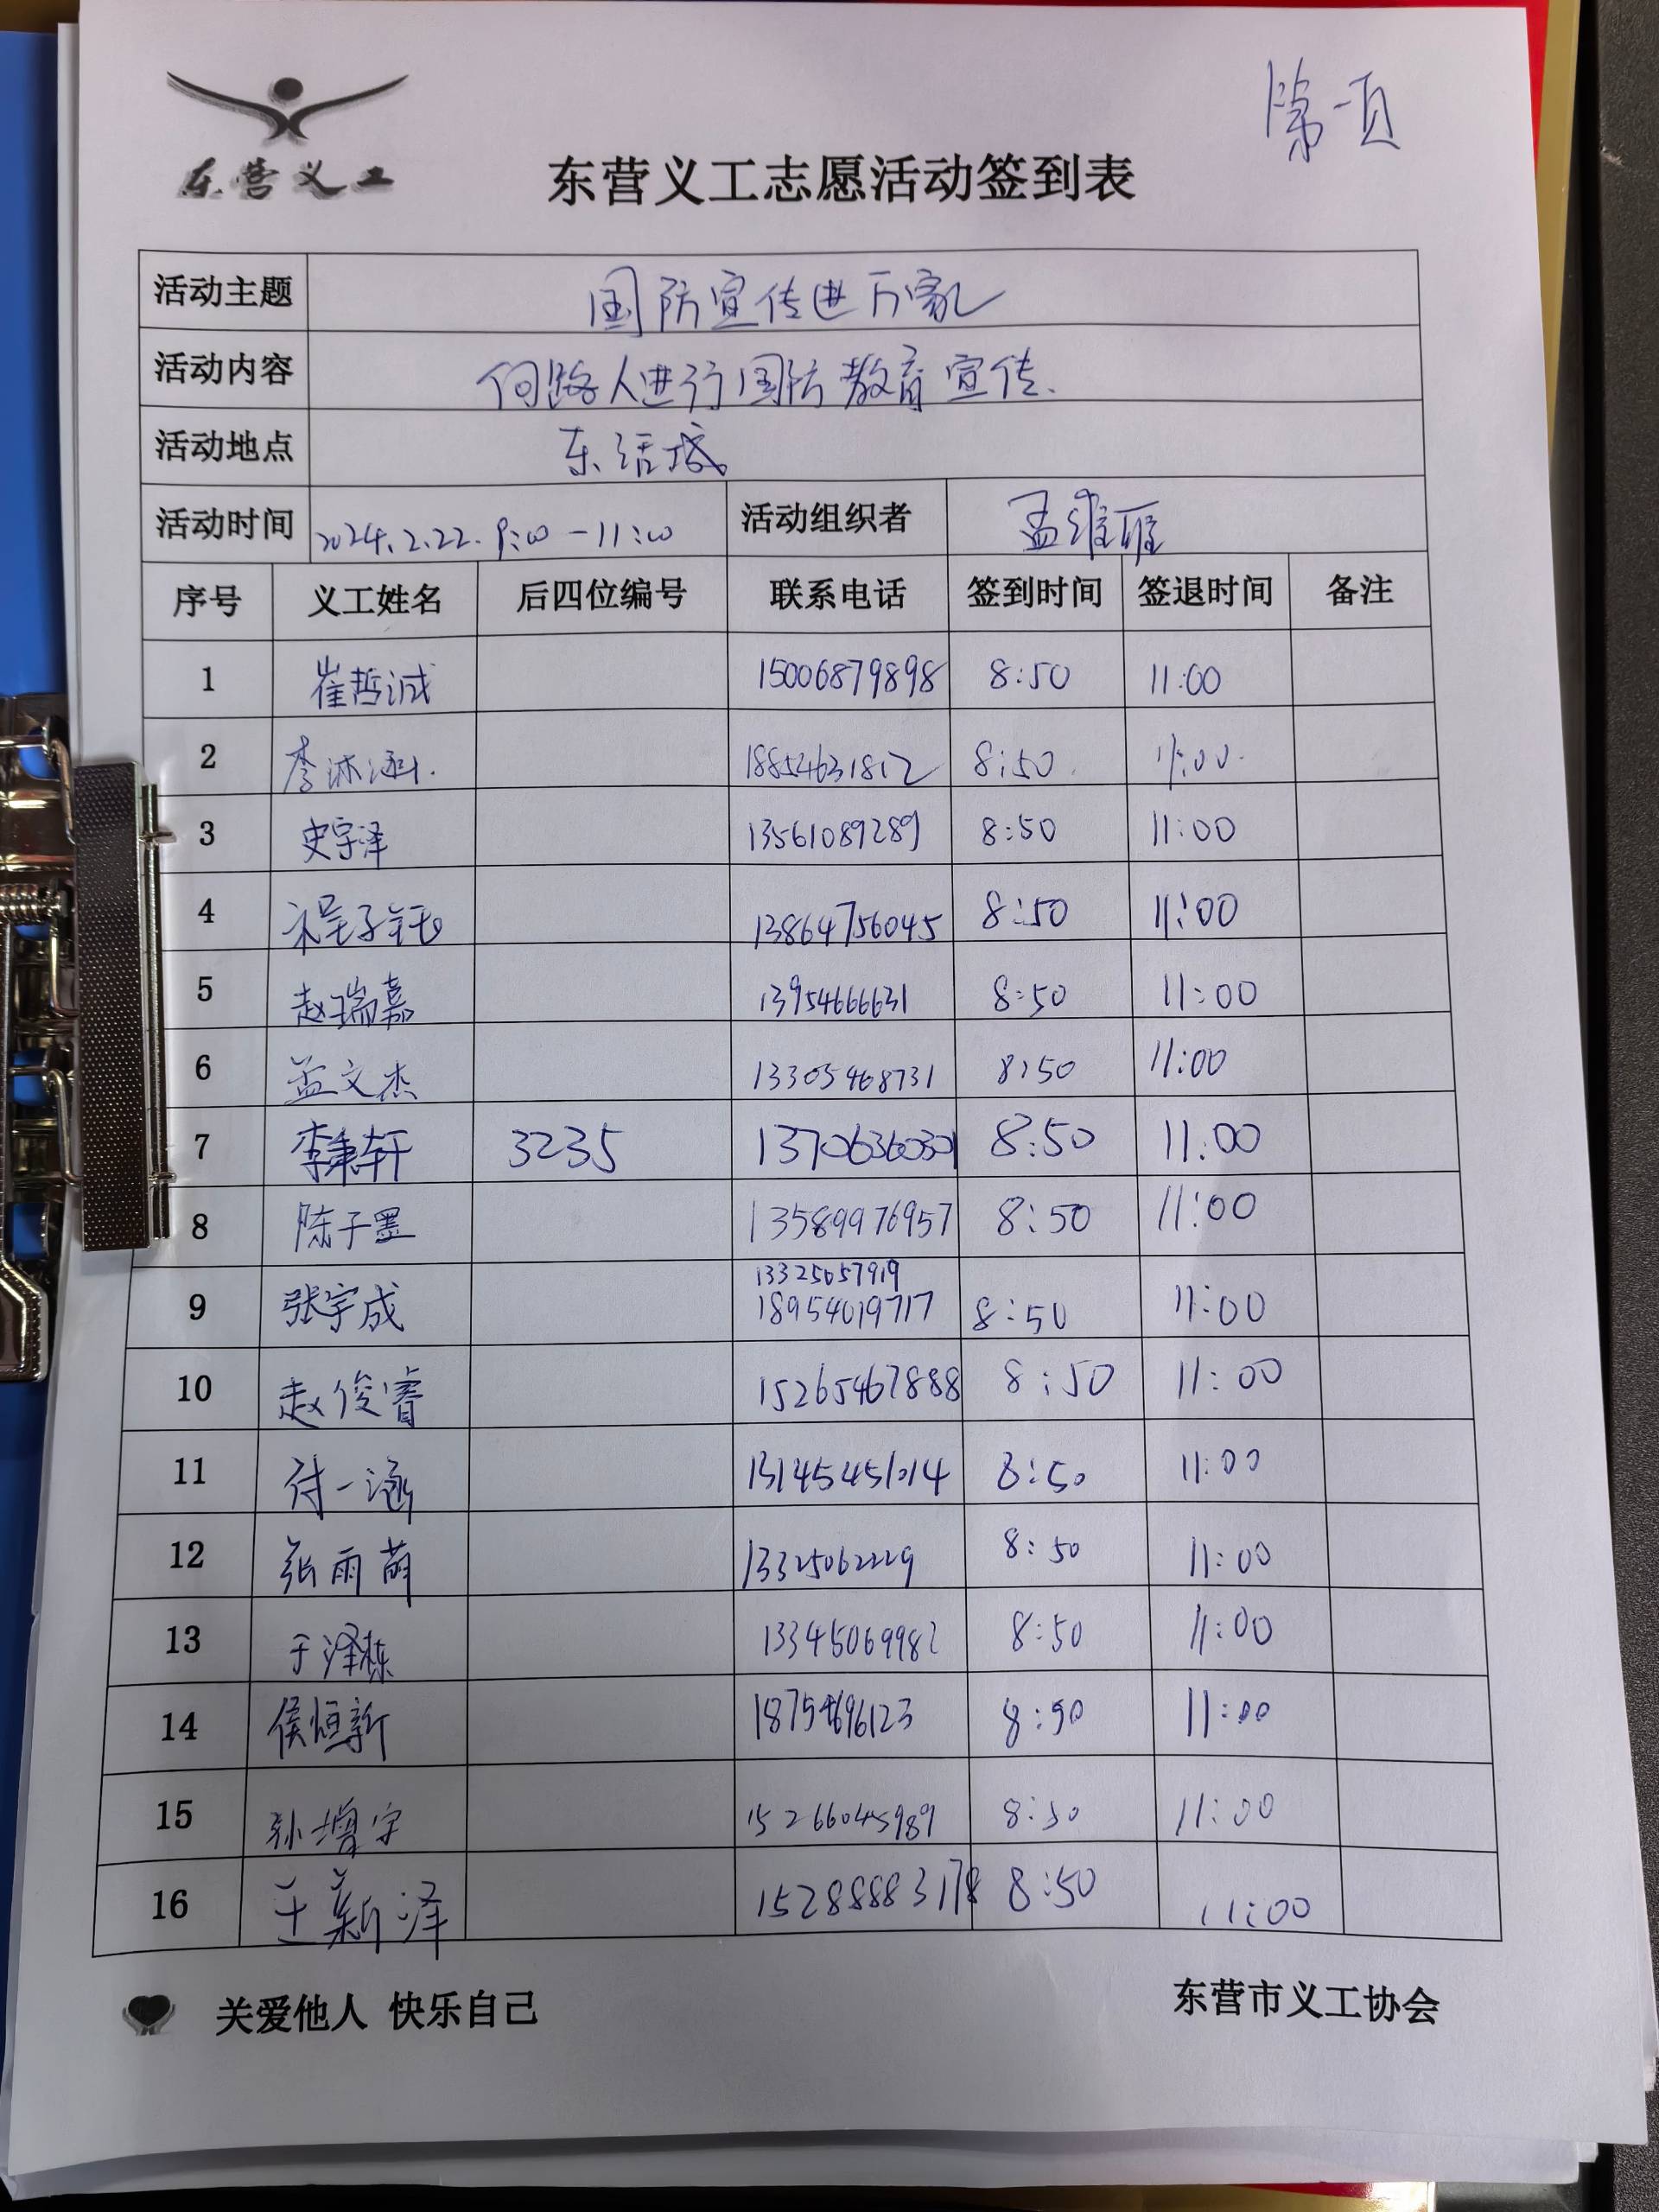 第一页
东营义工
东营义工志愿活动签到表
活动主题 国防宣传进万家
活动内容 向路人进行国防教育宣传.
活动地点 东活城
活动时间 2024.2.22. 9:00-11:00 活动组织者 孟维雁
序号 义工姓名 后四位编号 联系电话 签到时间 签退时间 备注
1 崔哲诚 15006879898 8:50 11:00
2 李沐涵 18854631812 8:50 11:00
3 史宇泽 13561089289 8:50 11:00
4 程子钰 13864756045 8:50 11:00
5 赵瑞嘉 13954666631 8:50 11:00
6 孟文杰 13305468731 8:50 11:00
7 李秉轩 3235 13706360301 8:50 11:00
8 陈子墨 13589976957 8:50 11:00
13325057919
9 张宇成 18954019717 8:50 11:00
10 赵俊睿 15265467888 8:50 11:00
11 付一涵 13145451014 8:50 11:00
12 张雨萌 13325062229 8:50 11:00
13 于泽栋 13345069982 8:50 11:00
14 侯恒新 18754696123 8:50 11:00
15 孙增宇 15266045989 8:50 11:00
16 王新泽 15288883178 8:50 11:00
关爱他人 快乐自己 东营市义工协会